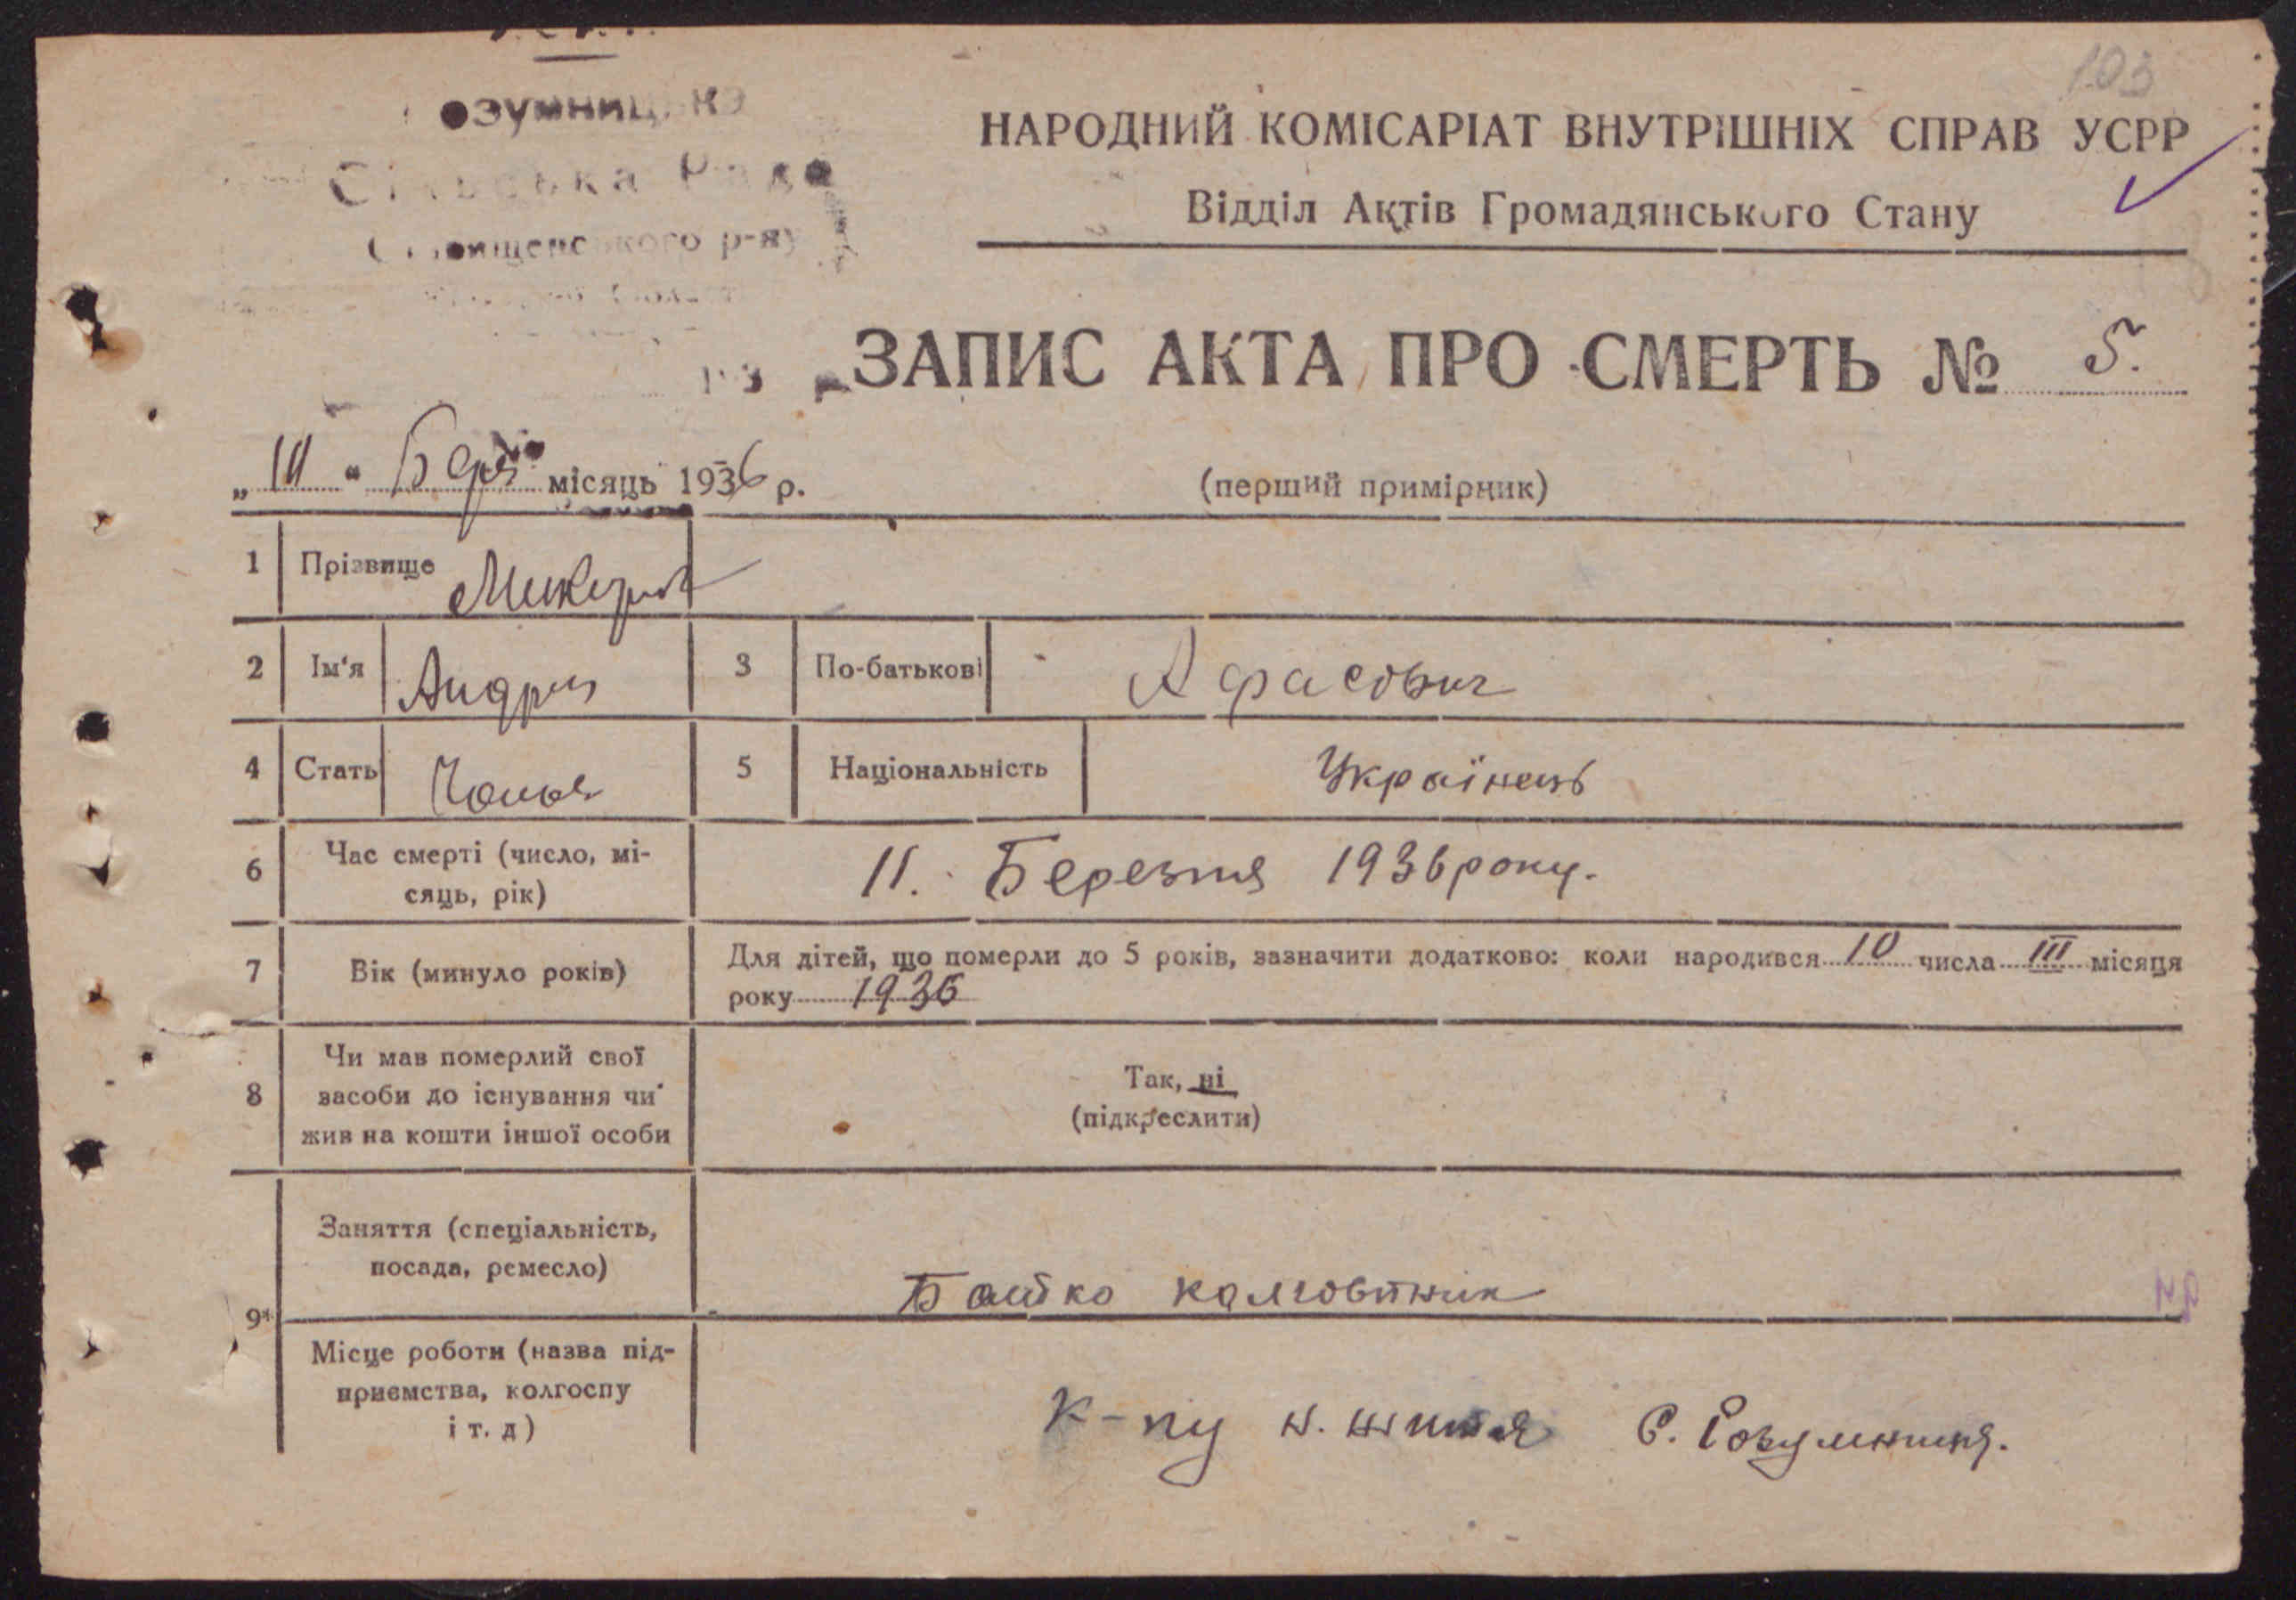 103
НАРОДНИЙ КОМІСАРІАТ ВНУТРІШНІХ СПРАВ УСРР
Відділ Актів Громадянського Стану
Сільська Рада
р-ну
ЗАПИС АКТА ПРО СМЕРТЬ № 5.
місяць 1936 р.
(перший примірник)
1 Прізвище
2 Ім'я Андрій 3 По-батькові
4 Стать Чолов 5 Національність Українець
6 Час смерті (число, мі-
сяць, рік)
11. Березня 1936 року.
7 Вік (минуло років)
Для дітей, що померли до 5 років, зазначити додатково: коли народився 10 числа III місяця
року 1936
8 Чи мав померлий свої
засоби до існування чи
жив на кошти іншої особи
Так, ні
(підкреслити)
9 Заняття (спеціальність,
посада, ремесло)
Батько колговпник
Місце роботи (назва під-
приємства, колгоспу
і т. д)
К-пу Н. життя С. Розумниця.